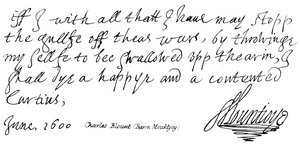 Iff I with all thatt I have may stopp
the gullfe off theas wars, by throwinge
my sellfe to bee swallowed upp thearin, I
shall dye a happye and a contented
Curtius,
June, 1600 Charles Blount (Baron Mountjoy)
Mountjoy